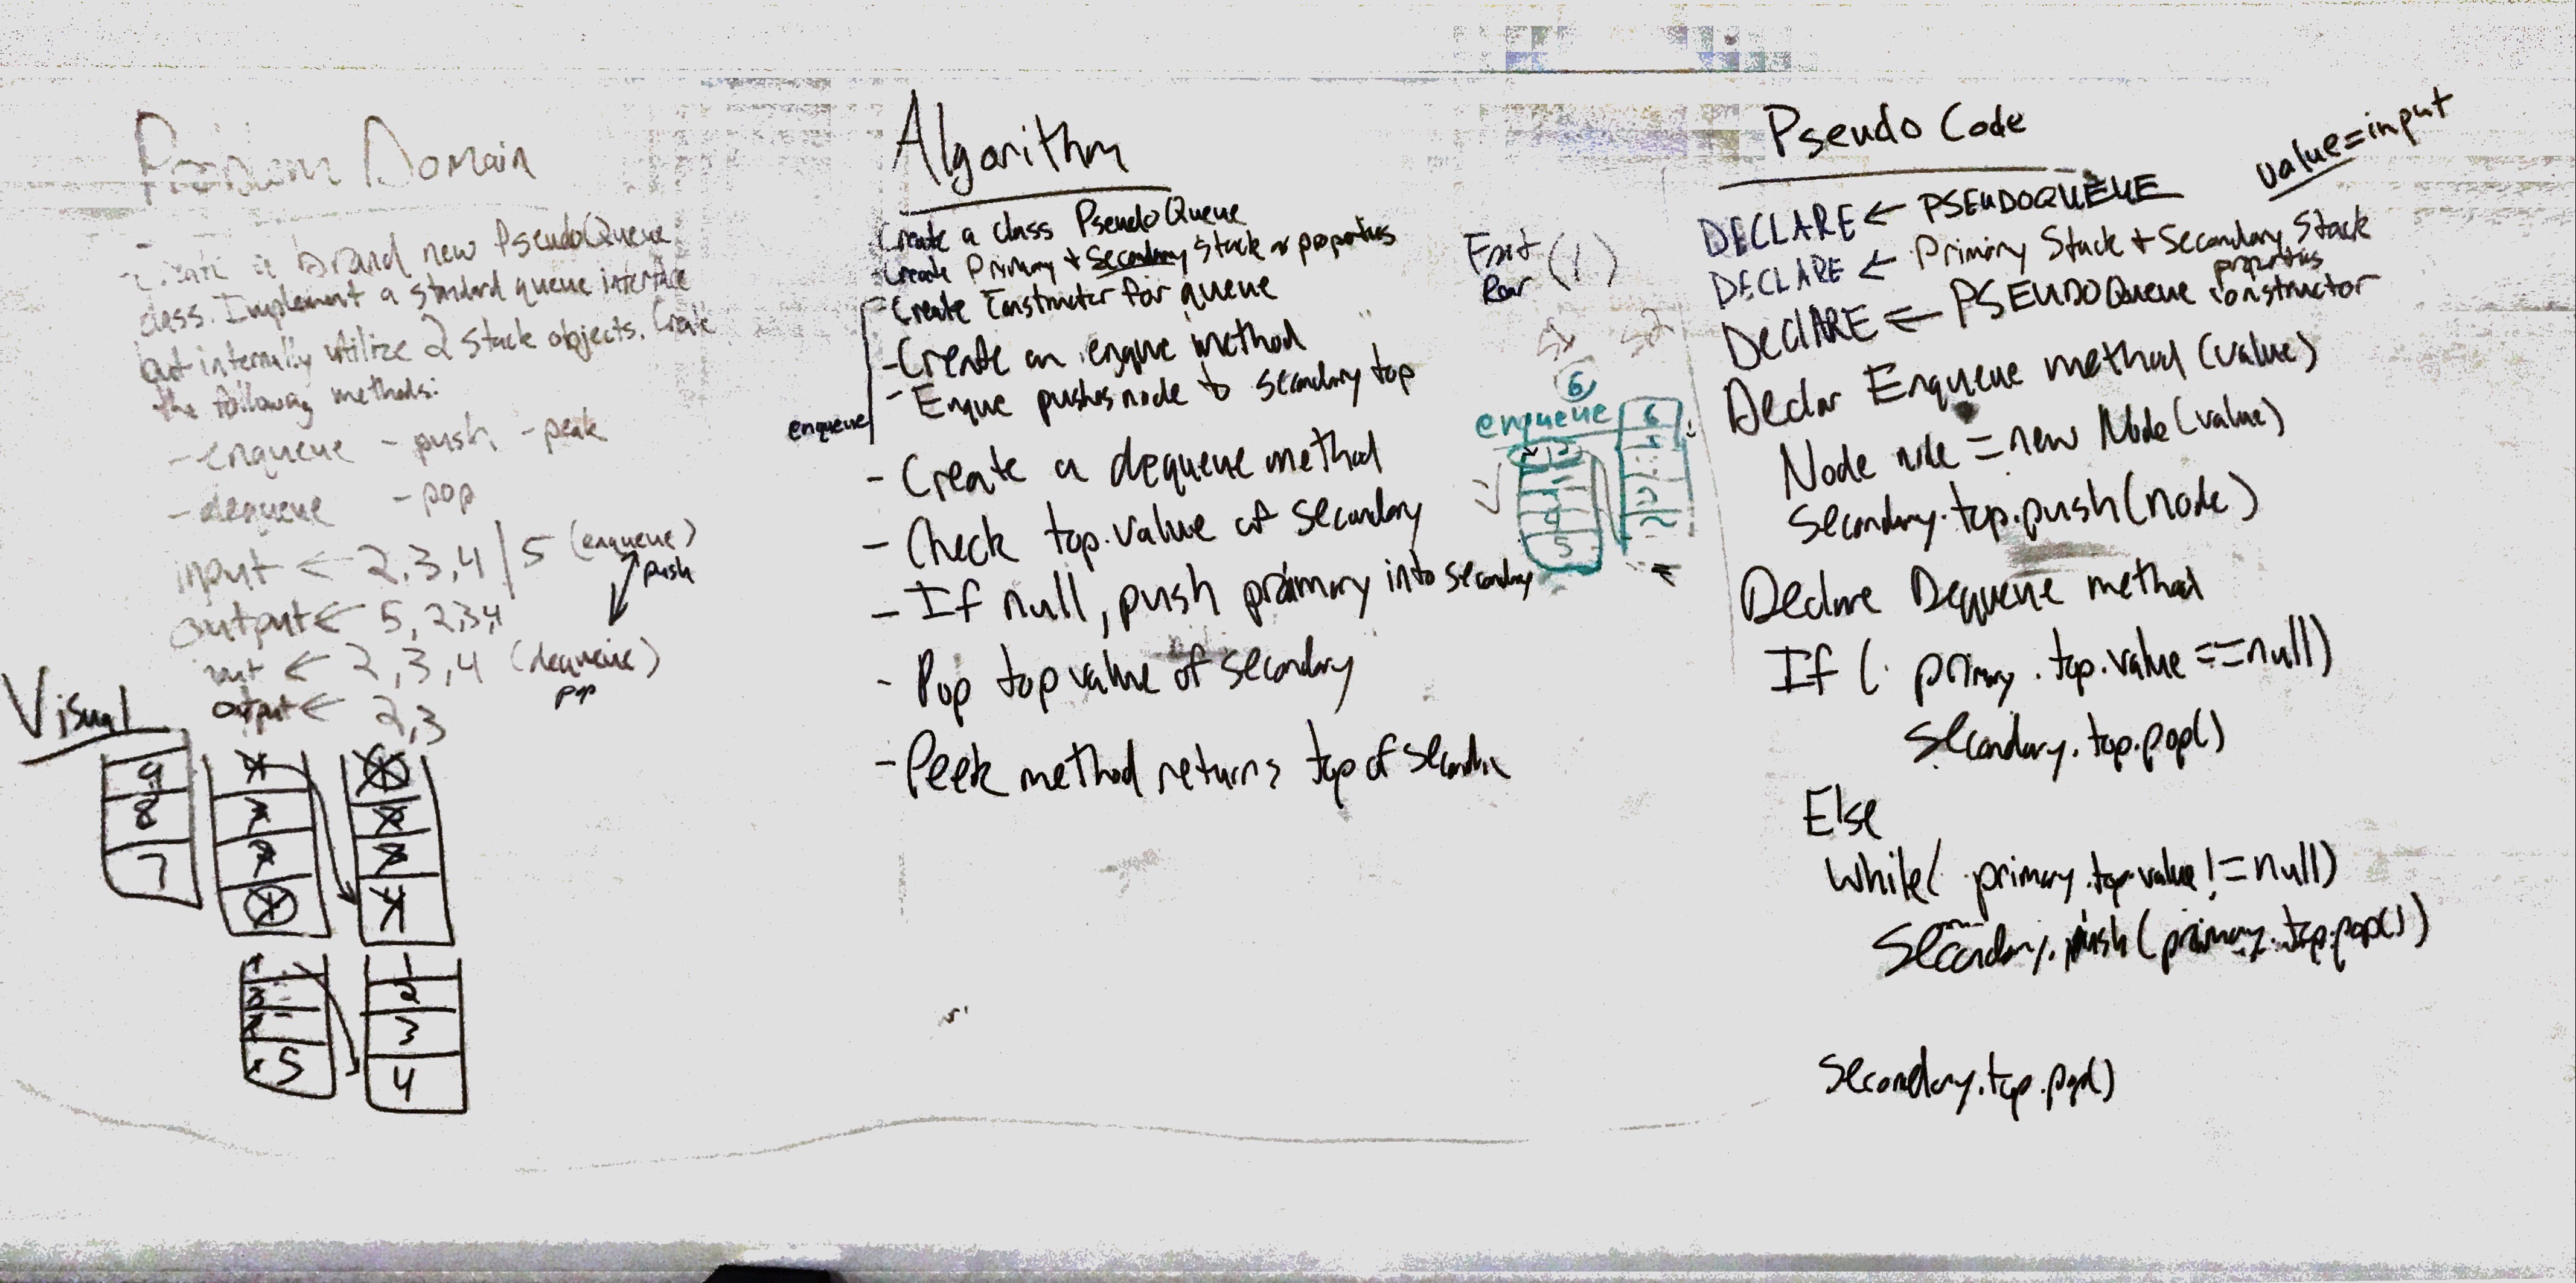 Problem Domain
- Create a brand new PseudoQueue
class. Implement a standard queue interface
but internally utilize 2 stack objects. Create
the following methods:
- enqueue - push - peak
- dequeue - pop
input ← 2,3,4 | 5 (enqueue)
push
output ← 5,2,3,4
input ← 2,3,4 (dequeue)
pop
output ← 2,3
Visual
9
8
7
5
1
2
3
4
Algorithm
Create a class PseudoQueue
Create Primary + Secondary Stack properties
- Create Constructor for queue
- Create an enque method
- Enque pushes node to secondary top
enqueue
- Create a dequeue method
- Check top.value of secondary
- If null, push primary into secondary
- Pop top value of secondary
- Peek method returns top of
Front
Rear
6
enqueue
6
4
5
Pseudo Code
value=input
DECLARE ← PSEUDOQUEUE
DECLARE ← Primary Stack + Secondary Stack
properties
DEClARE ← PSEUDOQueue constructor
Declar Enqueue method (value)
Node node = new Node(value)
Secondary.top.push(node)
Declare Dequeue method
If ( primary.top.value ==null)
Secondary.top.pop()
Else
While( primary.top.value != null)
Secondary.push(primary.top.pop())
Secondary.top.pop()